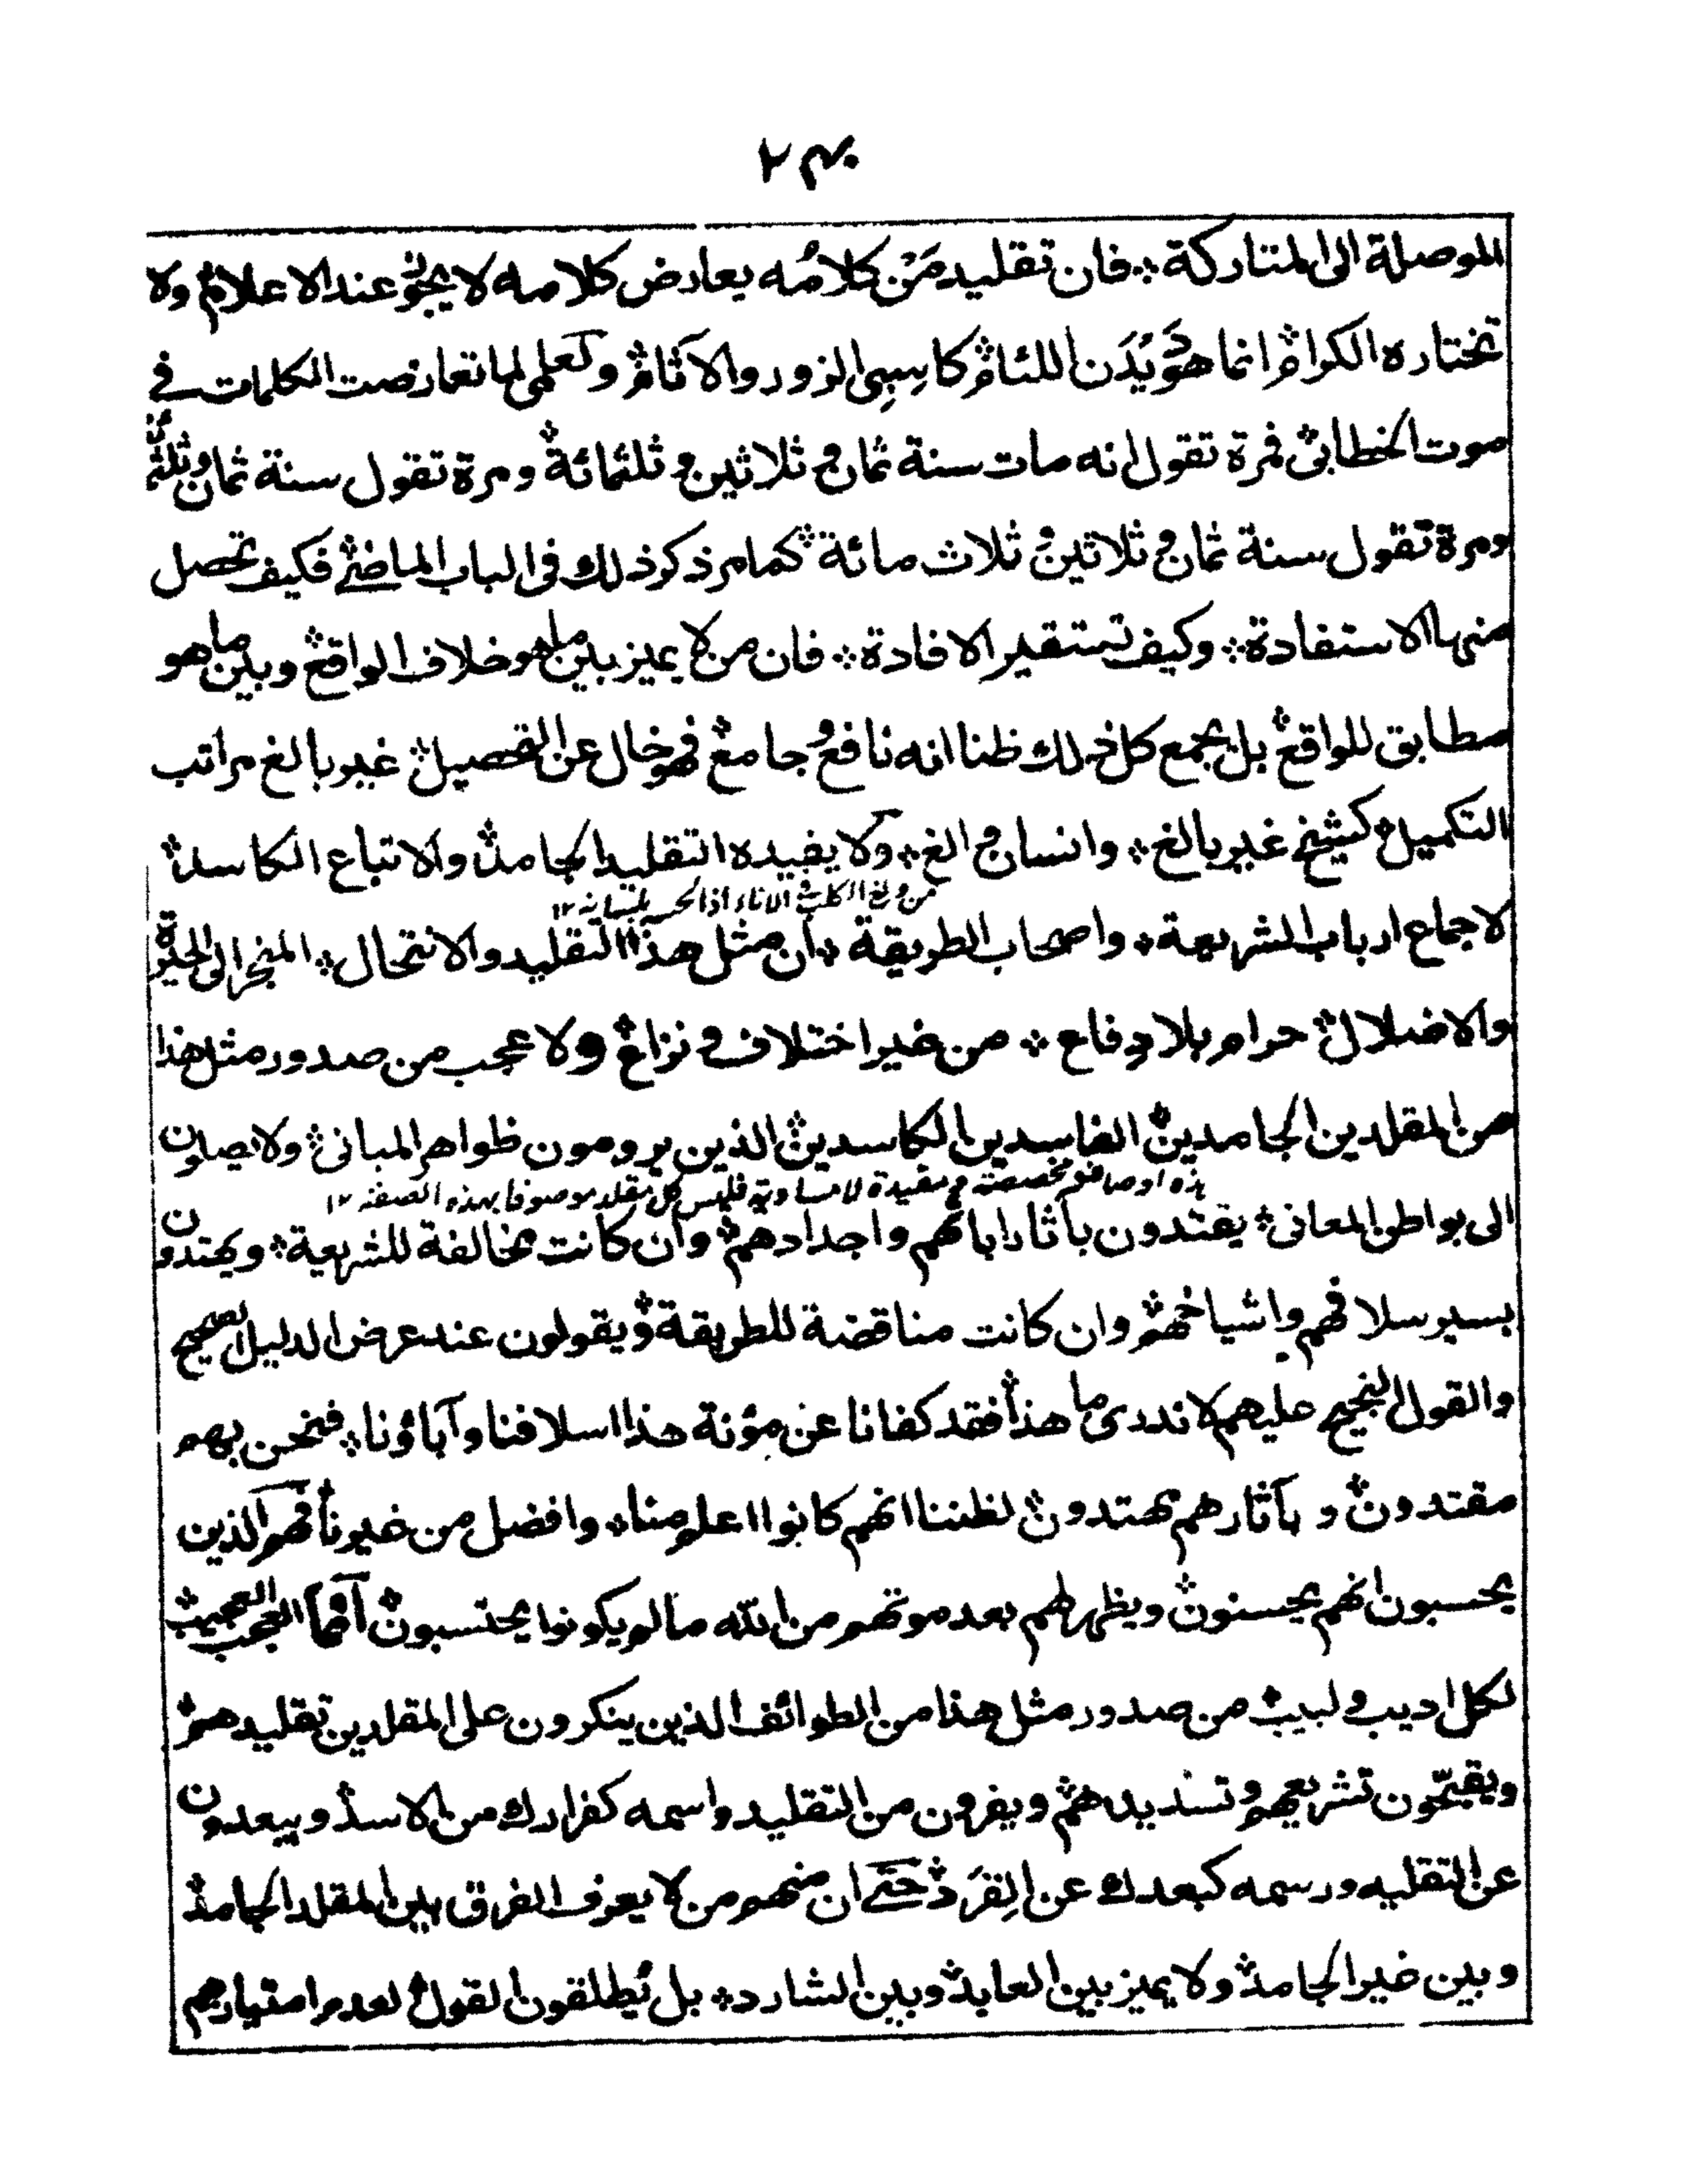 ٢٣٠
الموصلة الى المتاركة ؞ فان تقليد مَنْ كلامُه يعارض كلامه لا يجوز عند الاعلام ولا
تختاره الكرام انما هو دَيْدَن اللئام كاسِبِي الزور والآثام ولَعلمى لما تعارضت الكلمات فى
موت الخطابى فمرة تقول انه مات سنة ثمان و ثلاثين و ثلثمائة ومرة تقول سنة ثمان وثلثين
ومرة تقول سنة ثمان و ثلاثين و ثلاث مائة كما مر ذكر ذلك فى الباب الماضى فكيف تحصل
منها الاستفادة ؞ وكيف تستقير الافادة ؞ فان من لا يميز بين ما هو خلاف الواقع وبين ما هو
مطابق للواقع بل يجمع كل ذلك ظنا انه نافع و جامع فهو خال عن التحصيل غير بالغ مراتب
التكميل كشيخ غير بالغ ؞ وانسان والغ ؞ ولا يفيده التقليد الجامد والاتباع الكاسد
من ولغ الكلب فى الاناء اذا لحسه بلسانه ١٢
لاجماع ارباب الشريعة ؞ واصحاب الطريقة ؞ ان مثل هذا التقليد والانتحال ؞ المنجر الى الحيرة
والاضلال حرام بلا دفاع ؞ من غير اختلاف و نزاع ولا عجب من صدور مثل هذا
من المقلدين الجامدين الفاسدين الكاسدين الذين يرومون ظواهر المبانى ولا يصلون
هذه اوصاف مخصصة و مقيدة لا مساوية فليس كل مقلد موصوفا بهذه الصفة ١٢
الى بواطن المعانى يقتدون بآثار ابائهم واجدادهم وان كانت مخالفة للشريعة ؞ ويهتدون
بسير سلافهم واشياخهم وان كانت مناقضة للطريقة ويقولون عند عرض الدليل الصحيح
والقول النجيح عليهم لا ندرى ما هذا فقد كفانا عن مؤنة هذا اسلافنا وآباؤنا ؞ فنحن بهم
مقتدون و بآثارهم مهتدون لظننا انهم كانوا اعلم منا ؞ وافضل من غيرنا فهم الذين
يحسبون انهم يحسنون ويظهر لهم بعد موتهم من الله ما لم يكونوا يحتسبون انما العجب العجيب
لكل اديب و لبيب من صدور مثل هذا من الطوائف الذين ينكرون على المقلدين تقليدهم
ويقبّحون تشريعهم و تسديدهم ويفرون من التقليد واسمه كفرارك من الاسد ويبعدون
عن التقليد ورسمه كبعدك عن القِرَد حتى ان منهم من لا يعرف الفرق بين المقلد الجامد
وبين غير الجامد ولا يميز بين العابد وبين الشارد ؞ بل يُطلقون القول لعدم امتيازهم